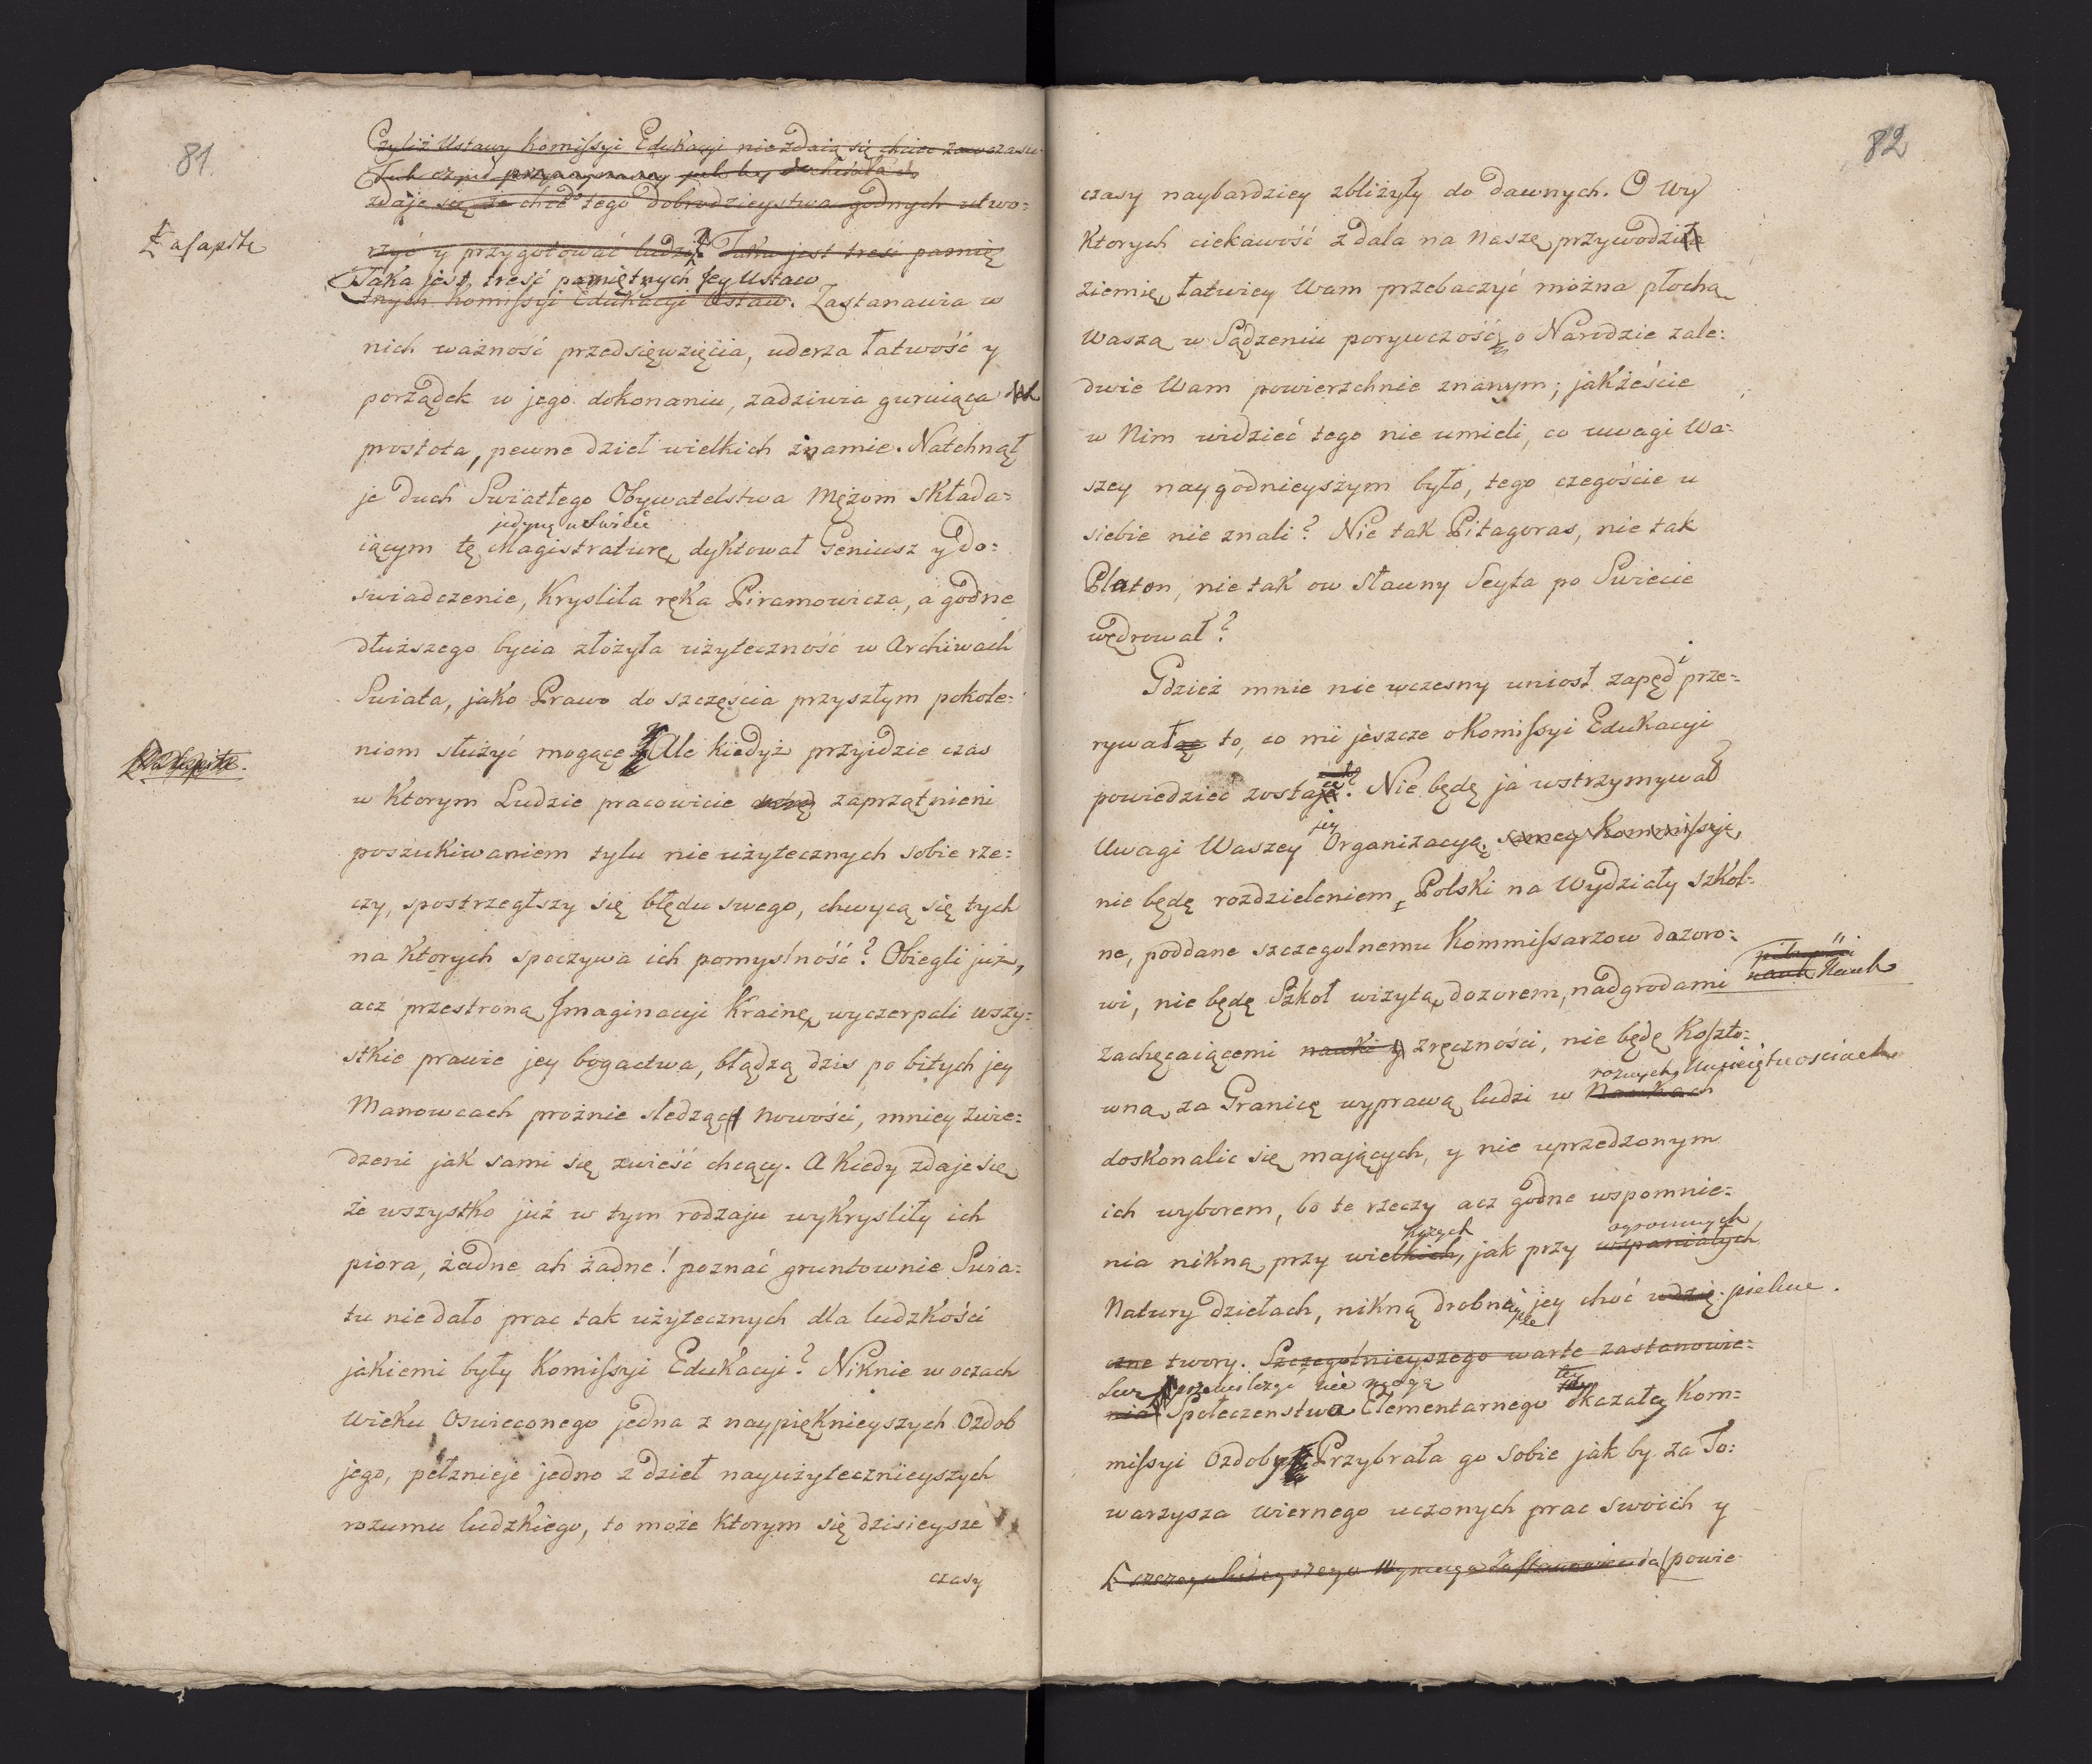 81.
Czyliż Ustawy Komissyi Edukacyi nie zdaią się chciec zawczasu
zdaje się że chce tego dobrodzieystwa godnych utwo=
Z asapite
rzyć y przygotować ludzi? Taka jest tresć pamię
Taka jest, treść pamiętnych Jey Ustaw
tnych Komissyi Edukacyi Ustaw. Zastanawia w
nich ważność przedsięwzięcia, uderza łatwość y
porządek w jego dokonaniu, zadziwia guruiąca
prostota, pewne dzieł wielkich znamie. Natchnął
je duch Swiatłego Obywatelstwa Mężom składa=
jedyną w Swiecie
iącym tę Magistraturę, dyktował Geniusz y do=
swiadczenie, Krysliła ręka Piramowicza, a godne
dłuższego bycia złożyła użyteczność w Archiwach
Swiata, jako Prawo do szczęscia przyszłym pokole=
niom służyć mogące. Ale kiedyż przyidzie czas
w Ktorym Ludzie pracowicie zaprzątnieni
poszukiwaniem tylu nie użytecznych sobie rze=
czy, spostrzegłszy się błędu swego, chwycą się tych
na Ktorych spoczywa ich pomyslność? Obiegli już,
acz przestroną Jmaginacyi Krainę, wyczerpali wszy=
stkie prawie jey bogactwa, błądzą dzis po bitych jey
Manowcach prożnie sledząc nowości, mniey zwie=
dzeni jak sami się zwieść chcący. A Kiedy zdaje się
że wszystko już w tym rodzaju wykrysliły ich
piora, żadne ah żadne! poznać gruntownie Swia=
tu nie dało prac tak użytecznych dla ludzkości
jakiemi były Komissyi Edukacyi? Niknie w oczach
Wieku Oswieconego jedna z naypięknieyszych Ozdob
jego, pełznieje jedno z dzieł nayużytecznieyszych
rozumu ludzkiego, to może Ktorym się dzisieysze
czasy
82
czasy naybardziey zbliżyły do dawnych. O Wy
Ktorych ciekawość z dala na Naszę przywodzi
ziemię, łatwiey Wam przebaczyć można płochą
Waszą w Sądzeniu porywczość, o Narodzie zale=
dwie Wam powierzchnie znanym; jakżeście
w Nim widzieć tego nie umieli, co uwagi Wa=
szey naygodnieyszym było, tego czegoście u
siebie nie znali? Nie tak Pitagoras, nie tak
Platon, nie tak ow sławny Scyta po Swiecie
wędrował?
Gdzież mnie nie wczesny uniosł zapęd i prze=
rywał to, co mi jeszcze o Komissyi Edukacyi
powiedziec zostaje? Nie będę ja wstrzymywał
jey
Uwagi Waszey Organizacyą samey Kommissyi,
nie będę rozdzieleniem Polski na Wydziały szkol=
ne, poddane szczegolnemu Kommissarzow dozoro=
pilności
wi, nie będę Szkoł wizytą, dozorem, nadgrodami nauk Nauk
zachęcaiącemi nauki y zręczności, nie będę Koszto=
roznych Umieiętnosciach
wną, za Granicę wyprawą ludzi w Naukach
doskonalic się mających, y nie uprzedzonym
ich wyborem, bo te rzeczy acz godne wspomnie=
ogromnych
nia nikną przy wielkich, jak przy wspaniałych
Natury dziełach, nikną drobne jey choć wdzię piękne.
czne twory. Szczegolnieyszego warte zastanowie=
Lecz przemilczyć nie mogę tey
nia Społeczenstwa Elementarnego okazałey Kom=
missyi Ozdoby. Przybrała go sobie jak by za To=
warzysza wiernego uczonych prac swoich y
szczegulnieyszego wymaga Zastanowienia powie